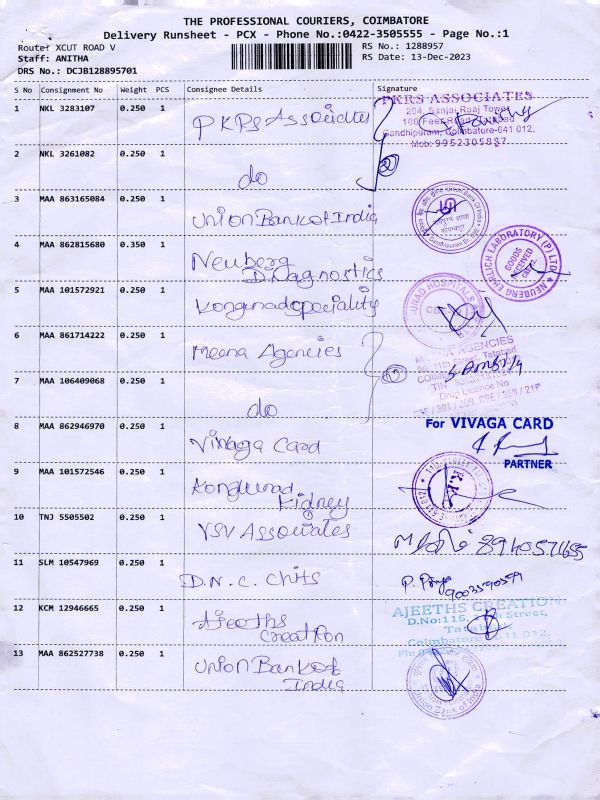 THE PROFESSIONAL COURIERS, COIMBATORE
Delivery Runsheet - PCX - Phone No.:0422-3505555 - Page No.:1
Route: XCUT ROAD V
RS No.: 1288957
Staff: ANITHA
RS Date: 13-Dec-2023
DRS No.: DCJB128895701
S No Consignment No Weight PCS Consignee Details Signature
1 NKL 3283107 0.250 1 PKRS Associates
PKRS ASSOCIATES
204, Sanjai Raaj Tower
100 Feet Road
Gandhipuram, Coimbatore-641 012.
Mob: 9952305887
2 NKL 3261082 0.250 1 do
2
3 MAA 863165084 0.250 1 Union Bank of India
Union Bank of India
Gandhipuram Br.
4 MAA 862815680 0.350 1 Neuberg
Diagnostics
NEUBERG EHRLICH LABORATORY (P) LTD
GOODS
RECEIVED
5 MAA 101572921 0.250 1 Kongunad speciality
HOSPITALS
6 MAA 861714222 0.250 1 Meena Agencies
AGENCIES
11th Street, Tatabad
Drug Licence No
7 MAA 106409068 0.250 1 do
8 MAA 862946970 0.250 1 Vivaga Card
For VIVAGA CARD
PARTNER
9 MAA 101572546 0.250 1 Kongunad
Kidney
10 TNJ 5505502 0.250 1 VSV Associates
11 SLM 10547969 0.250 1 D.N.C. Chits
P. Priya
9003590579
12 KCM 12946665 0.250 1 Ajeeths
Creation
AJEETHS CREATION
D.No:115,
Street,
Coimbatore
13 MAA 862527738 0.250 1 Union Bank of
India
Union Bank of India